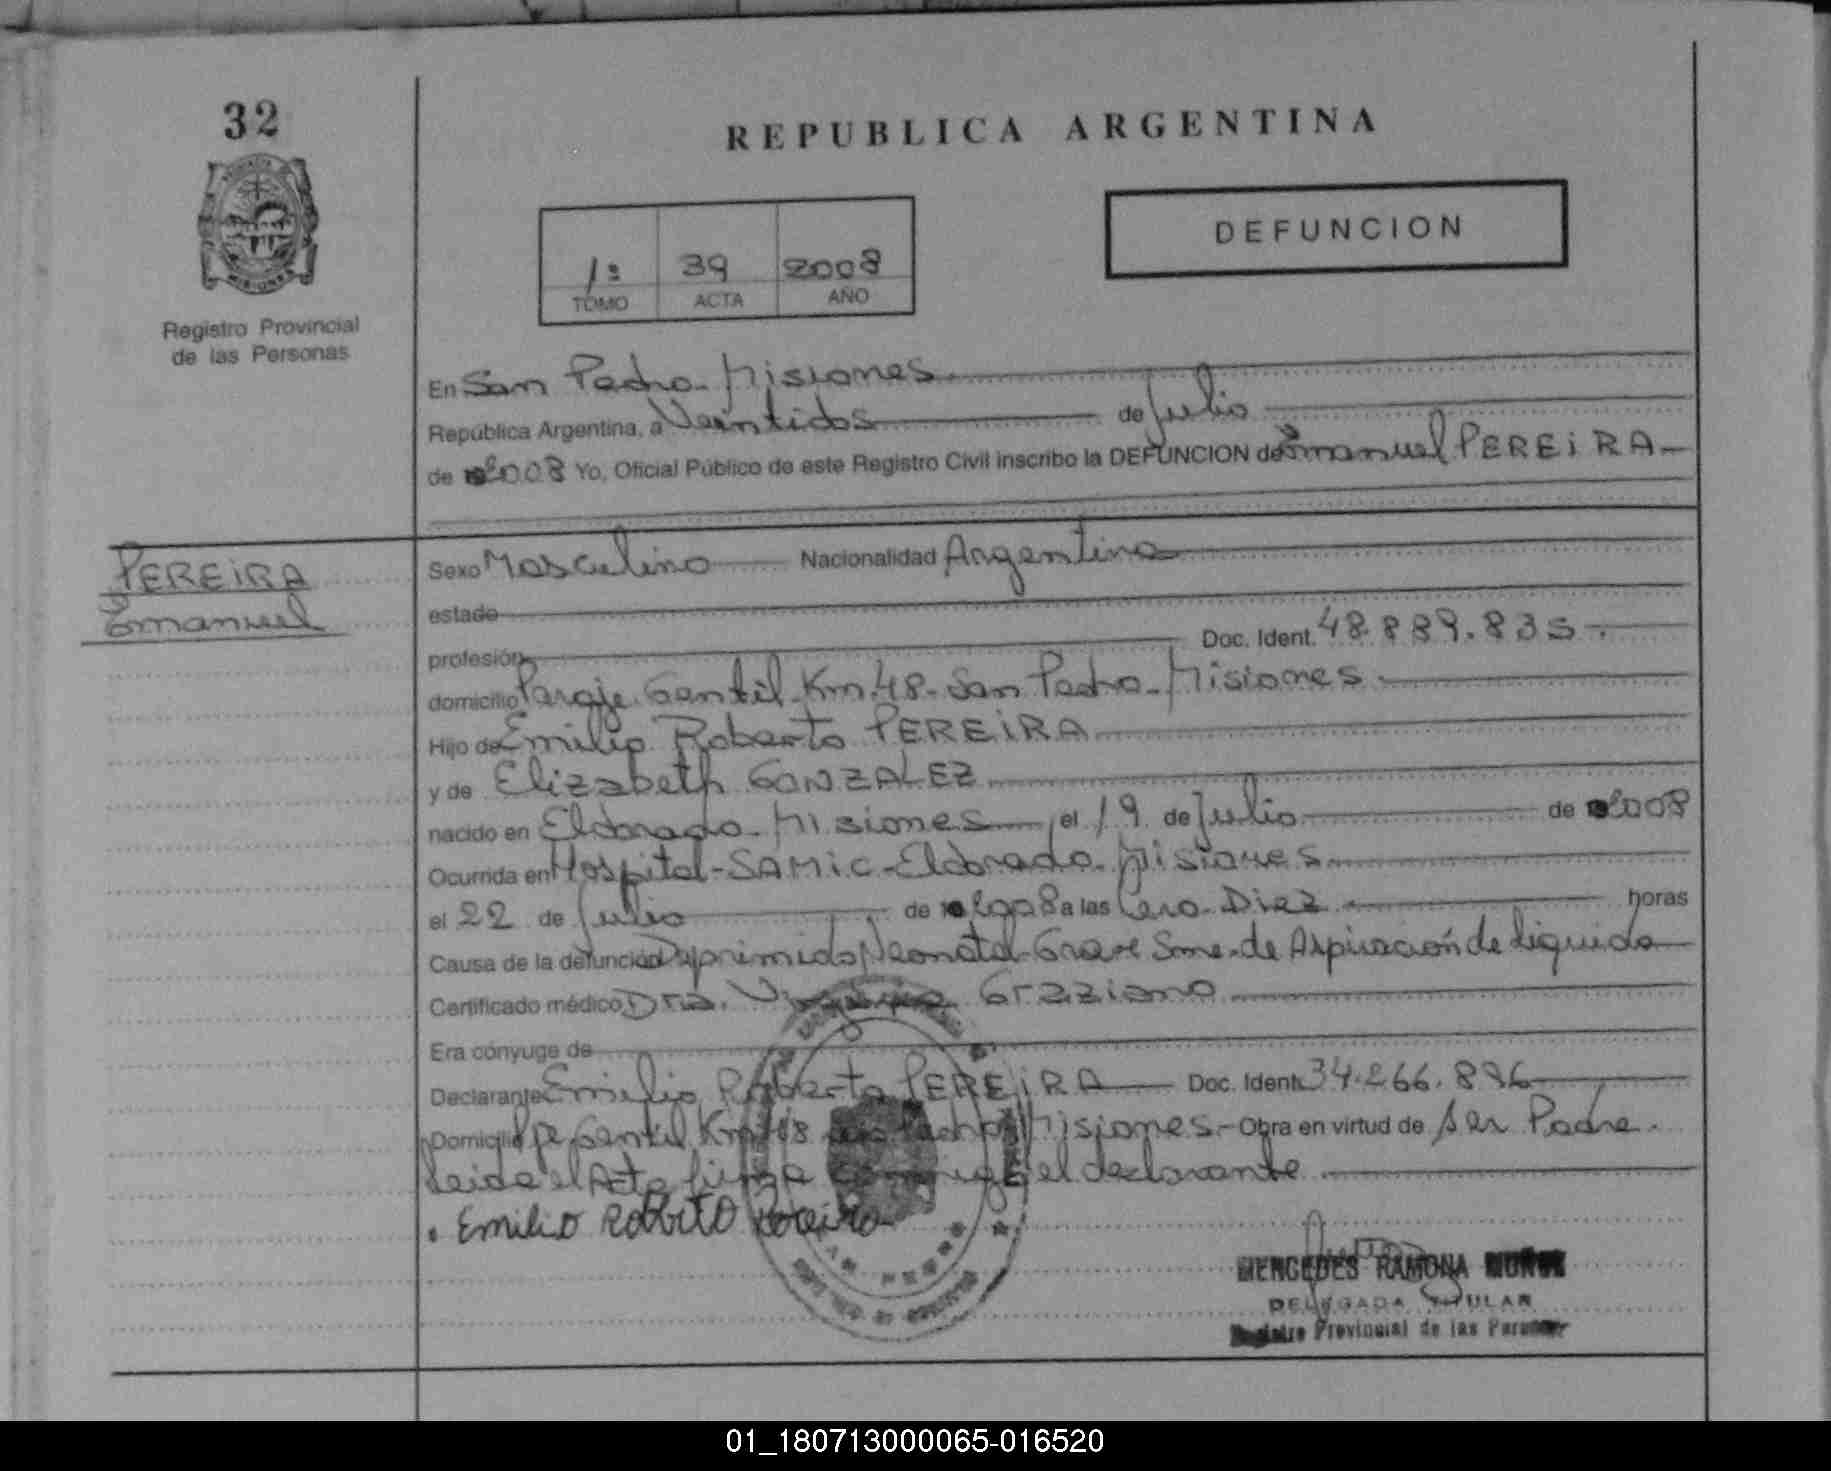 32
REPUBLICA ARGENTINA
DEFUNCION
1º 39 2008
TOMO ACTA AÑO
Registro Provincial
de las Personas
En San Pedro - Misiones
República Argentina, a Veintidos de Julio
de 2008 Yo, Oficial Público de este Registro Civil inscribo la DEFUNCION de Emanuel PEREiRA
PEREiRA
Emanuel
Sexo Masculino Nacionalidad Argentina
estado
profesión Doc. Ident. 48.889.835
domicilio Paraje Gentil Km 48 - San Pedro - Misiones
Hijo de Emilio Roberto PEREiRA
y de Elizabeth GONZALEZ
nacido en Eldorado - Misiones el 19 de Julio de 2008
Ocurrida en Hospital - SAMiC - Eldorado - Misiones
el 22 de Julio de 2008 a las Cero Diez horas
Causa de la defunción Deprimido Neonatal Grave Sme. de Aspiración de liquido
Certificado médico Dra. Graziano
Era cónyuge de
Declarante Emilio Roberto PEREiRA Doc. Ident. 34.266.896
Domicilio Pje Gentil Km 48 San Pedro Misiones - Obra en virtud de ser Padre.
Leida el Acta firma conmigo el declarante
Emilio Roberto Pereira
MERCEDES RAMONA MUÑOZ
DELEGADA TITULAR
Registro Provincial de las Personas
01_180713000065-016520